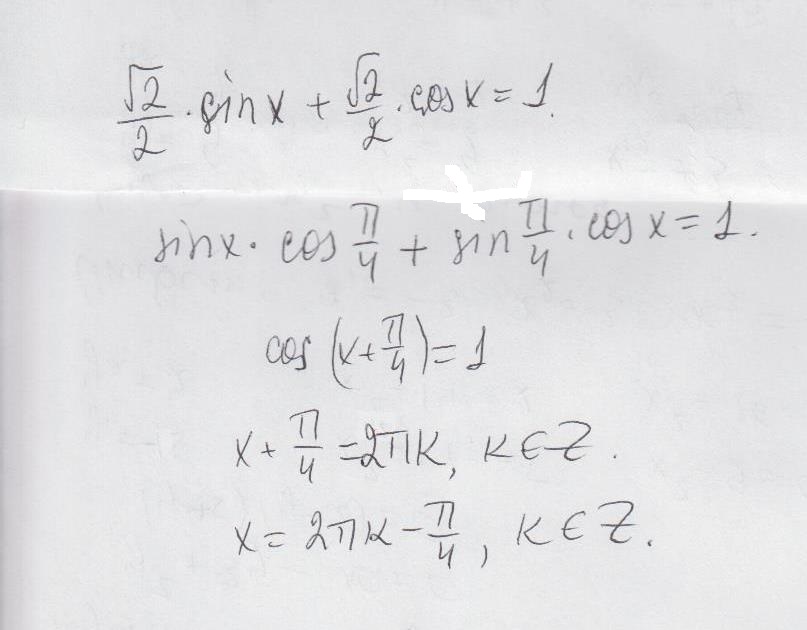 √2/2 · sin x + √2/2 · cos x = 1.
sin x · cos π/4 + sin π/4 · cos x = 1.
cos (x + π/4) = 1
x + π/4 = 2πk, k ∈ Z.
x = 2πk - π/4, k ∈ Z.